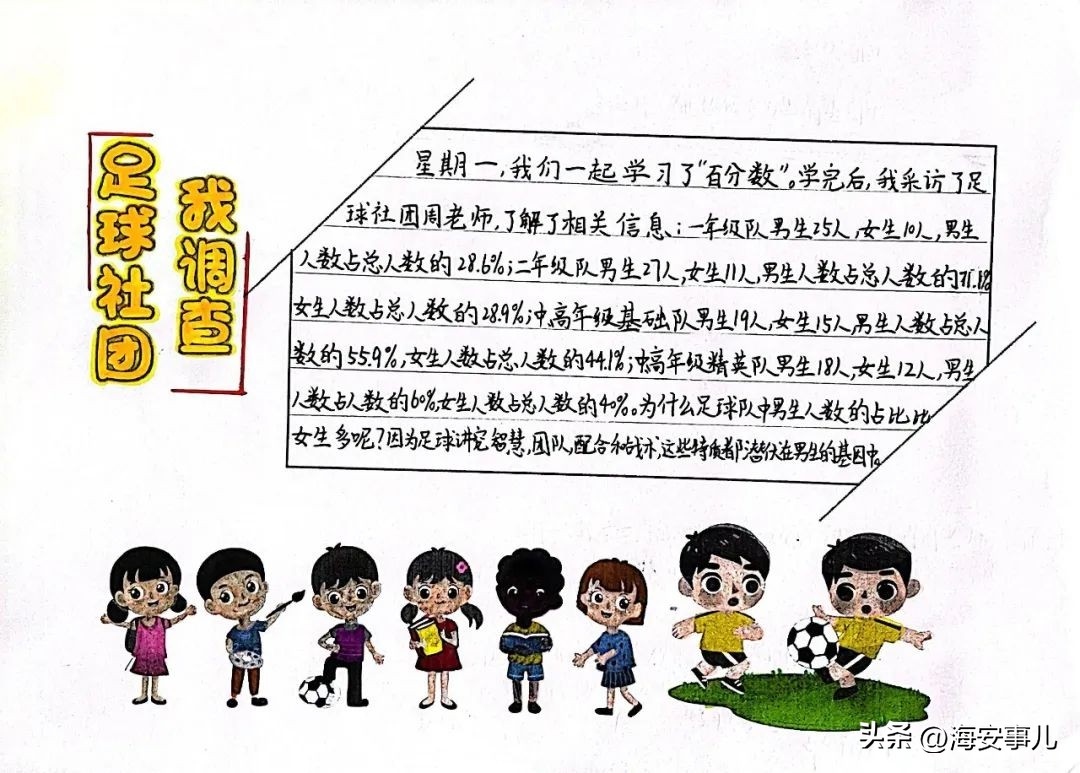 足球社团
我调查
星期一,我们一起学习了“百分数”。学完后,我采访了足
球社团周老师,了解了相关信息:一年级队男生25人,女生10人,男生
人数占总人数的28.6%;二年级队男生27人,女生11人,男生人数占总人数的71.1%
女生人数占总人数的28.9%;中高年级基础队男生19人,女生15人,男生人数占总人
数的55.9%,女生人数占总人数的44.1%;中高年级精英队男生18人,女生12人,男生
人数占人数的60%,女生人数占总人数的40%。为什么足球队中男生人数的占比比
女生多呢?因为足球讲究智慧,团队,配合和战术,这些特质都潜伏在男生的基因中。
头条 @海安事儿